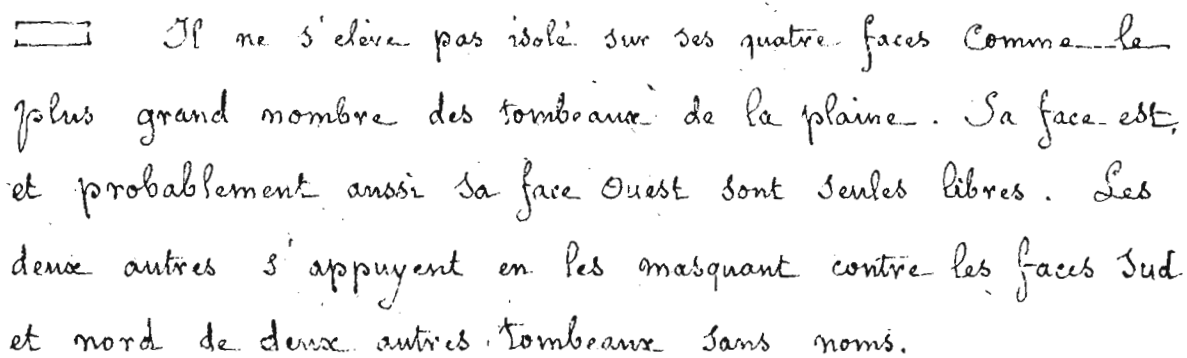 Il ne s'elève pas isolé sur ses quatre faces comme le
plus grand nombre des tombeaux de la plaine. Sa face est,
et probablement aussi sa face Ouest sont seules libres. Les
deux autres s'appuyent en les masquant contre les faces Sud
et nord de deux autres tombeaux sans noms.